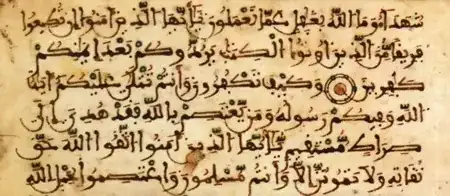 شهداء وما الله بغفل عما تعملون يأيها الذين ءامنوا إن تطيعوا
فريقا من الذين أوتوا الكتب يردوكم بعد إيمنكم
كفرين وكيف تكفرون وأنتم تتلى عليكم ءايت
الله وفيكم رسوله ومن يعتصم بالله فقد هدي إلى
صرط مستقيم يأيها الذين ءامنوا اتقوا الله حق
تقاته ولا تموتن إلا وأنتم مسلمون واعتصموا بحبل الله